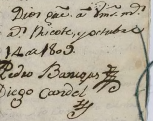 Dios gue. a Vm. ms.
as. Ricote, y octubre
12 de 1803.
Pedro Banegas
Diego Candel